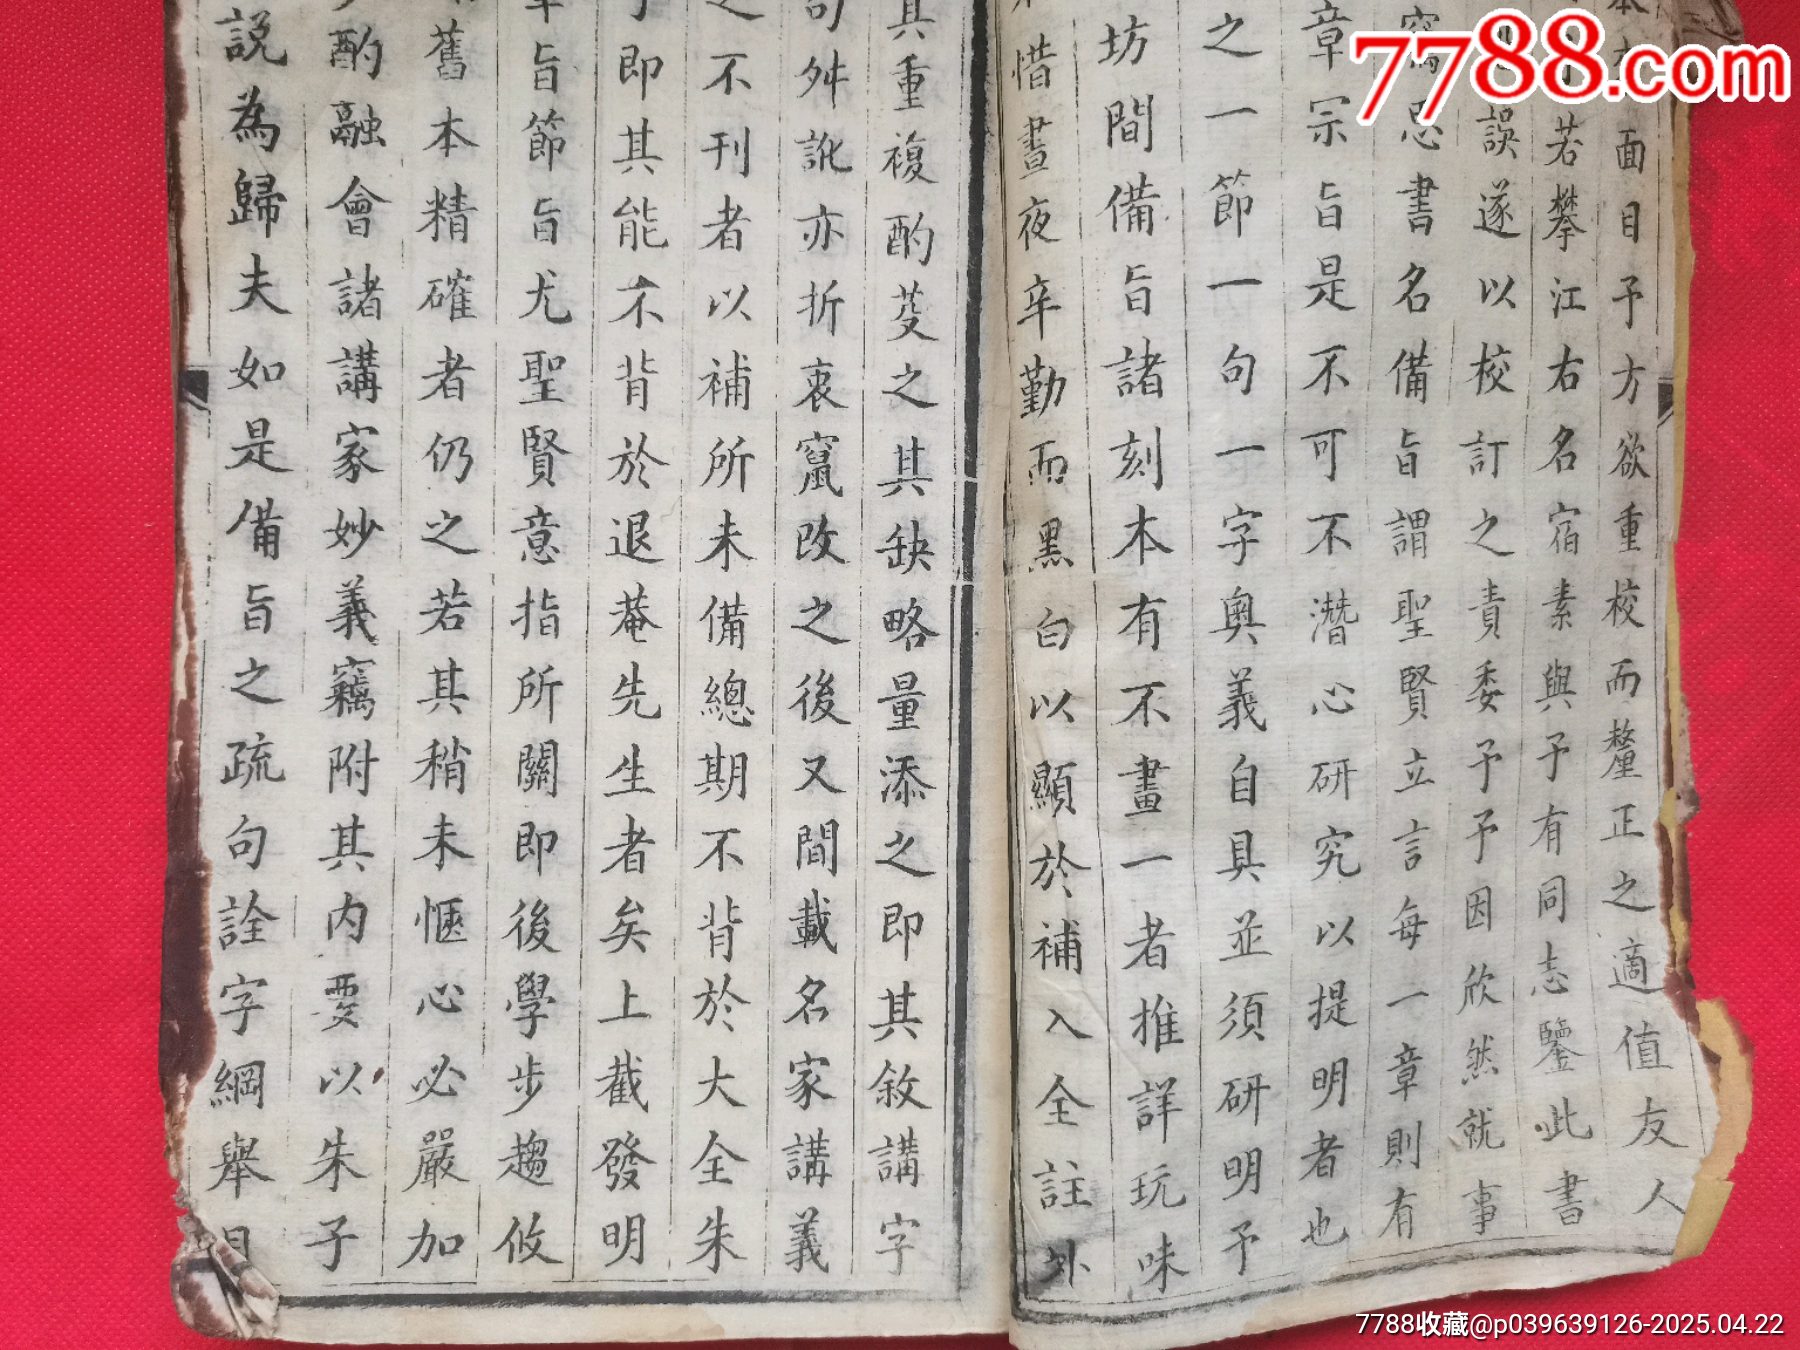 7788.com
面目予方欲重校而釐正之適值友人
若攀江右名宿素與予有同志鑒此書
誤遂以校訂之責委予予因欣然就事
思書名備旨謂聖賢立言每一章則有
章宗旨是不可不潛心研究以提明者也
之一節一句一字奧義自具並須研明予
坊間備旨諸刻本有不畫一者推詳玩味
惜晝夜辛勤而黑白以顯於補入全註外
其重複酌芟之其缺略量添之即其敘講字
句舛訛亦折衷竄改之後又間載名家講義
之不刊者以補所未備總期不背於大全朱
子即其能不背於退菴先生者矣上截發明
章旨節旨尤聖賢意指所關即後學步趨攸
舊本精確者仍之若其稍未愜心必嚴加
酌融會諸講家妙義竊附其內要以朱子
說為歸夫如是備旨之疏句詮字綱舉目
7788收藏@p039639126-2025.04.22